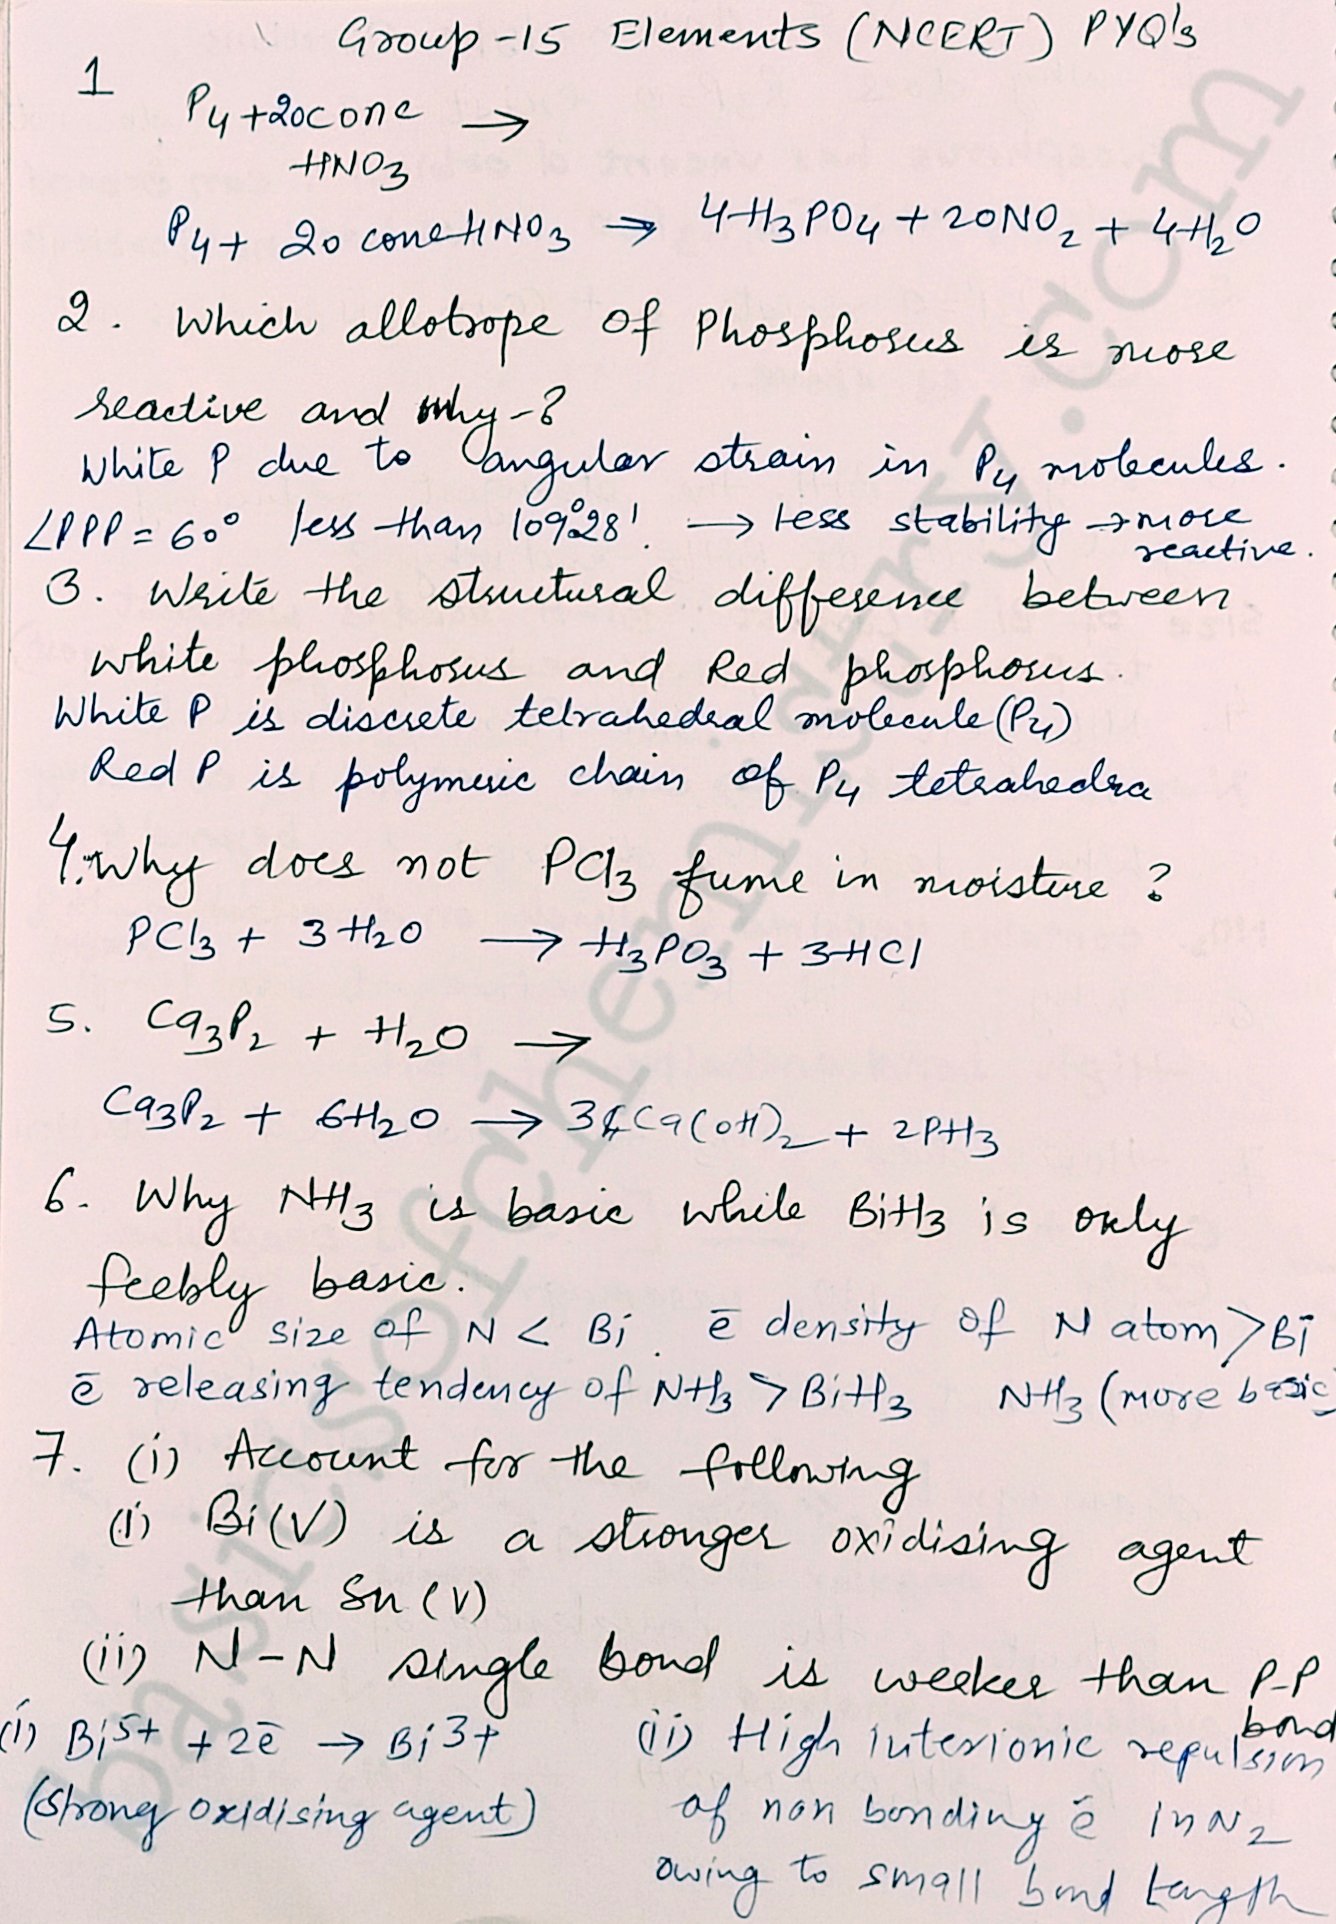 Group-15 Elements (NCERT) PYQ's
1
P₄ + 20 conc →
HNO₃
P₄ + 20 conc HNO₃ → 4H₃PO₄ + 20NO₂ + 4H₂O
2. Which allotrope of Phosphorus is more
reactive and why-?
White P due to angular strain in P₄ molecules.
∠PPP = 60° less than 109°28'. → less stability → more
reactive.
3. Write the structural difference between
white phosphorus and Red phosphorus.
White P is discrete tetrahedral molecule (P₄)
Red P is polymeric chain of P₄ tetrahedra
4. Why does not PCl₃ fume in moisture ?
PCl₃ + 3H₂O → H₃PO₃ + 3HCl
5. Ca₃P₂ + H₂O →
Ca₃P₂ + 6H₂O → 3Ca(OH)₂ + 2PH₃
6. Why NH₃ is basic while BiH₃ is only
feebly basic.
Atomic size of N < Bi. ē density of N atom > Bi
ē releasing tendency of NH₃ > BiH₃ NH₃ (more basic)
7. (i) Account for the following
(i) Bi(V) is a stronger oxidising agent
than Sn (V)
(ii) N-N single bond is weeker than P-P
bond
(i) Bi⁵⁺ + 2ē → Bi³⁺ (ii) High interionic repulsion
(strong oxidising agent) of non bonding ē in N₂
owing to small bond length
basicsofchemistry.com